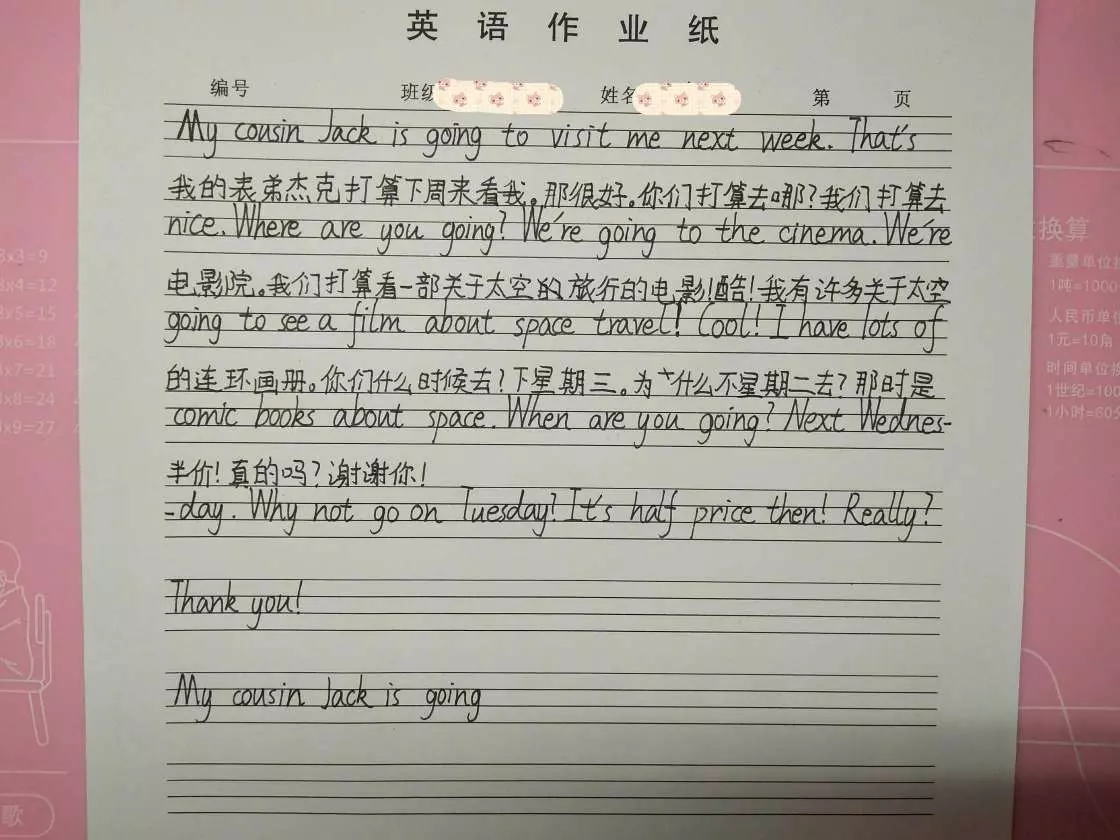 英语作业纸
编号 班级 姓名 第 页
My cousin Jack is going to visit me next week. That's
我的表弟杰克打算下周来看我。那很好。你们打算去哪?我们打算去
nice. Where are you going? We're going to the cinema. We're
电影院。我们打算看一部关于太空的旅行的电影!酷!我有许多关于太空
going to see a film about space travel! Cool! I have lots of
的连环画册。你们什么时候去?下星期三。为什么不星期二去?那时是
comic books about space. When are you going? Next Wednes-
半价!真的吗?谢谢你!
-day. Why not go on Tuesday? It's half price then! Really?
Thank you!
My cousin Jack is going
3x3=9
3x4=12
3x5=15
3x6=18
3x7=21
3x8=24
3x9=27
歌
换算
重量单位
1吨=1000
人民币单位
1元=10角
时间单位换
1世纪=100
1小时=60